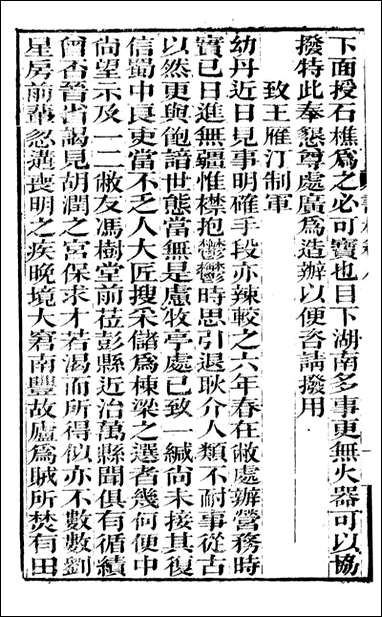 下面授石樵爲之必可寶也目下湖南多事更無火器可以協
撥特此奉懇尊處廣爲造辦以便咨請撥用
致王雁汀制軍
幼丹近日見事明確手段亦辣較之六年春在敝處辦營務時
實已日進無疆惟襟抱鬱鬱時思引退耿介人類不耐事從古
以然更與飽諳世態當無是慮牧亭處已致一緘尚未接其復
信蜀中良吏當不乏人大匠搜采儲爲棟梁之選者幾何便中
尚望示及一二敝友馮樹堂前莅彭縣近治萬縣聞俱有循績
曾否晉省謁見胡潤之宮保求才若渴而所得似亦不數數劉
星房前輩忽遘喪明之疾晚境大窘南豐故廬爲賊所焚有田